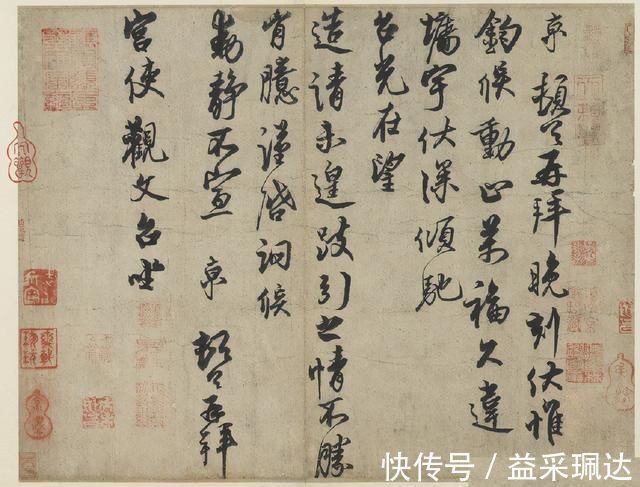 京 頓首再拜晚刻伏惟
鈞候動止萬福久違
墉宇伏深傾馳
台光在望
造請未遑跂引之情不勝
胷臆謹啓詢候
動靜不宣 京 頓首再拜
宮使觀文台坐
快传号／益采珮达